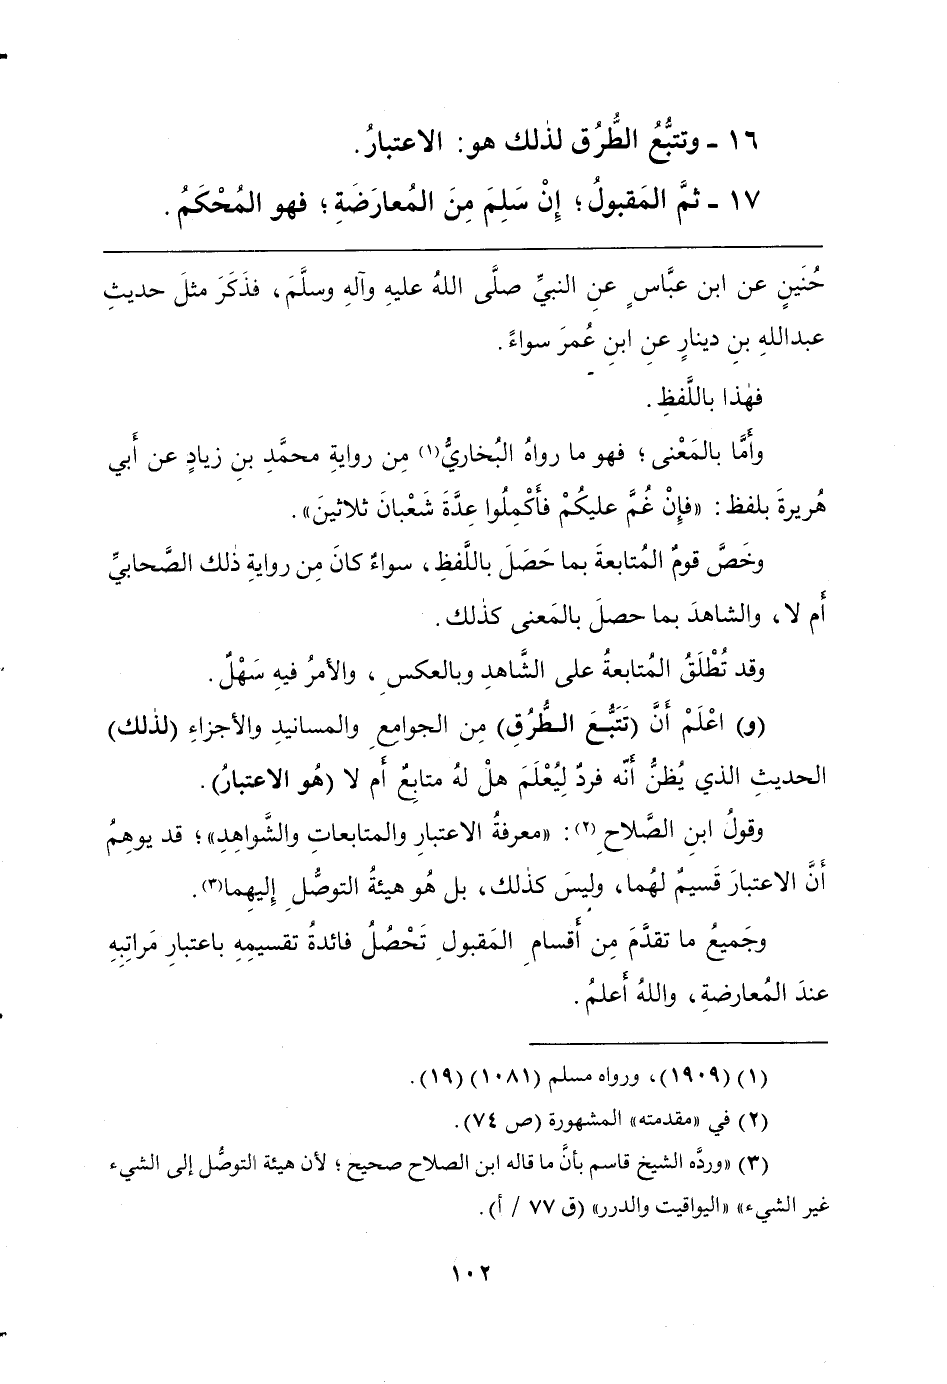 ١٦ - وتتبُّعُ الطُّرُق لذٰلك هو: الاعتبارُ.
١٧ - ثمَّ المَقبولُ؛ إِنْ سَلِمَ مِنَ المُعارَضَةِ؛ فهو المُحْكَمُ.
حُنَينٍ عن ابن عبَّاسٍ عنِ النبيِّ صلَّى اللهُ عليهِ وآلهِ وسلَّمَ، فذَكَرَ مثلَ حديثِ
عبداللهِ بنِ دينارٍ عنِ ابنِ عُمرَ سواءً.
فهٰذا باللَّفظِ.
وأَمَّا بالمَعْنى؛ فهو ما رواهُ البُخاريُّ(١) مِن روايةِ محمَّدِ بنِ زيادٍ عن أَبي
هُريرةَ بلفظ: «فإِنْ غُمَّ عليكُمْ فأَكْمِلُوا عِدَّةَ شَعْبانَ ثلاثينَ».
وخَصَّ قومٌ المُتابعةَ بما حَصَلَ باللَّفظِ، سواءٌ كانَ مِن روايةِ ذٰلك الصَّحابيِّ
أَم لا، والشاهدَ بما حصلَ بالمَعنى كذٰلك.
وقد تُطْلَقُ المُتابعةُ على الشَّاهدِ وبالعكسِ، والأمرُ فيهِ سَهْلٌ.
(و) اعْلَمْ أَنَّ (تَتَبُّعَ الطُّرُقِ) مِن الجوامعِ والمسانيدِ والأجزاءِ (لذٰلك)
الحديثِ الذي يُظنُّ أَنَّه فردٌ لِيُعْلَمَ هلْ لهُ متابعٌ أَم لا (هُو الاعتبارُ).
وقولُ ابنِ الصَّلاحِ(٢): «معرفةُ الاعتبارِ والمتابعاتِ والشَّواهِدِ»؛ قد يوهِمُ
أَنَّ الاعتبارَ قَسيمٌ لهُما، وليسَ كذٰلك، بل هُو هيئةُ التوصُّلِ إِليهِما(٣).
وجَميعُ ما تقدَّمَ مِن أَقسامِ المَقبولِ تَحْصُلُ فائدةُ تقسيمِهِ باعتبارِ مَراتِبِهِ
عندَ المُعارضةِ، واللهُ أَعلمُ.
(١) (١٩٠٩)، ورواه مسلم (١٠٨١) (١٩).
(٢) في «مقدمته» المشهورة (ص ٧٤).
(٣) «وردَّه الشيخ قاسم بأنَّ ما قاله ابن الصلاح صحيح؛ لأن هيئة التوصُّل إلى الشيء
غير الشيء» «اليواقيت والدرر» (ق ٧٧ / أ).
١٠٢